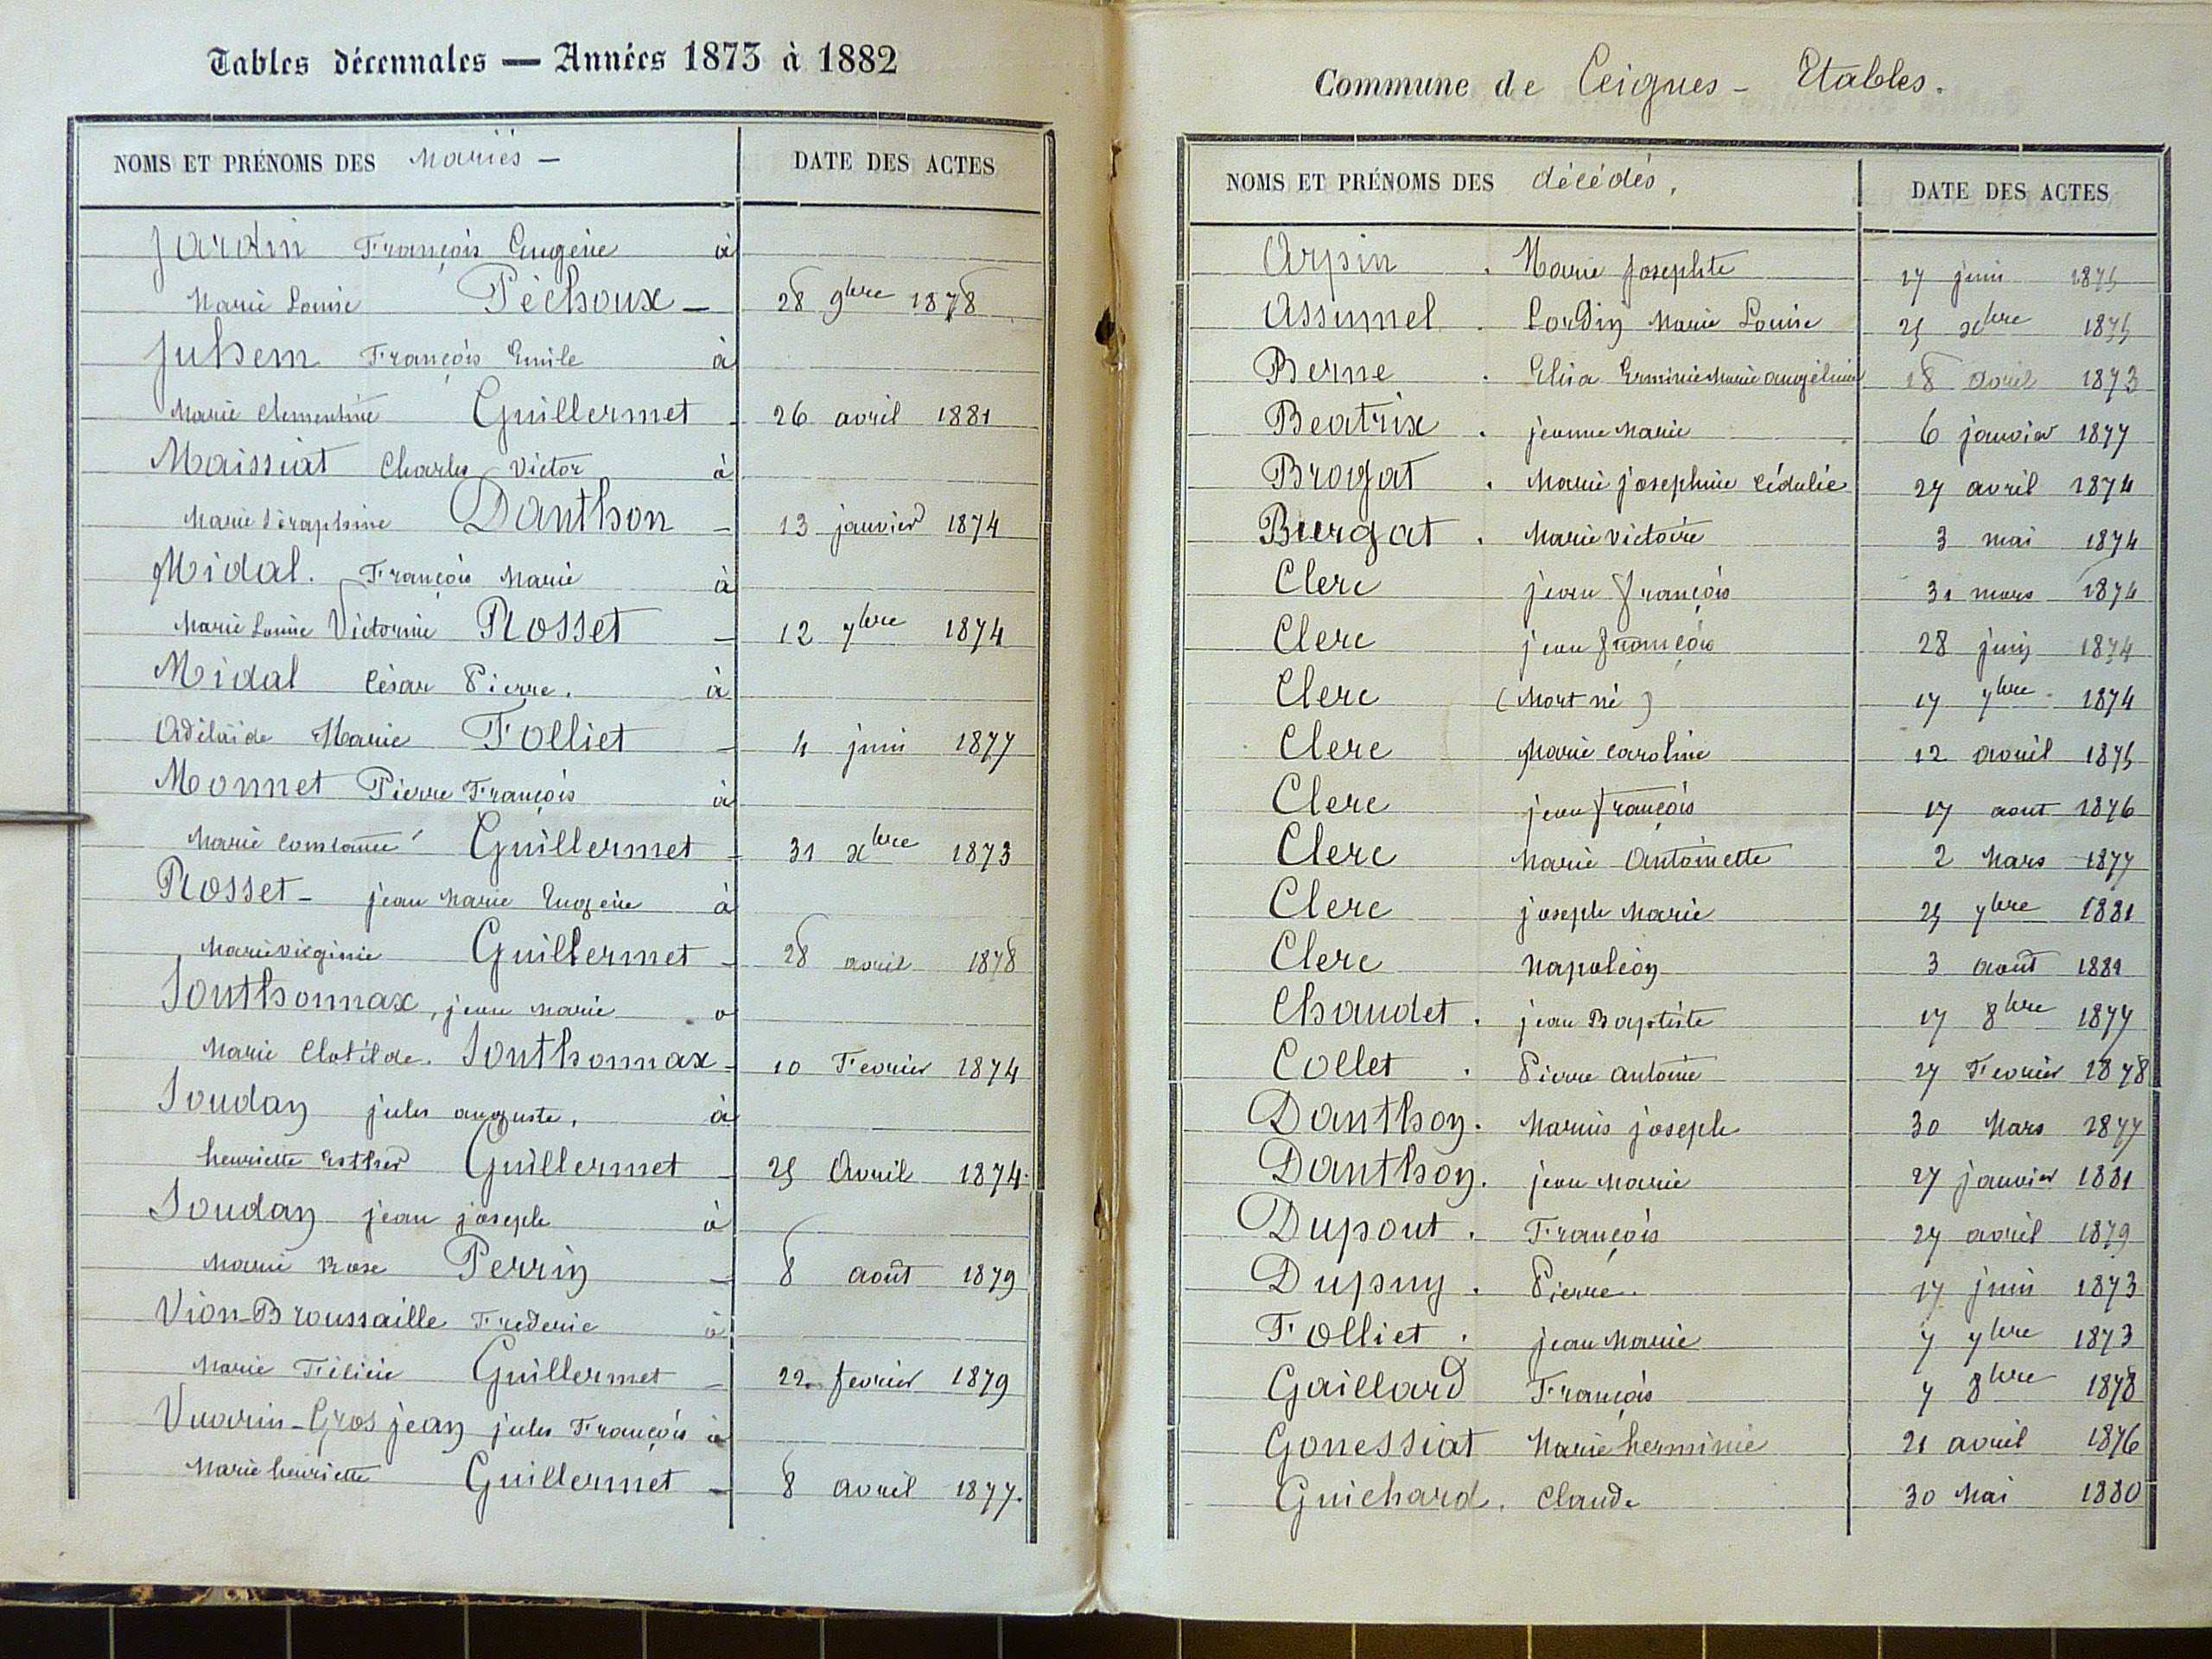 Tables décennales — Années 1873 à 1882
NOMS ET PRÉNOMS DES Mariés — DATE DES ACTES
Jardin François Eugène à
Marie Louise Péchoux — 28 9bre 1878
Juhem François Emile à
Marie Clementine Guillermet - 26 avril 1881
Maissiat Charles Victor à
Marie Séraphine Danthon - 13 janvier 1874
Midal. François Marie à
Marie Louise Victorine Rosset - 12 7bre 1874
Midal César Pierre. à
Adélaïde Marie Folliet - 4 juin 1877
Monnet Pierre François à
Marie Constance Guillermet - 31 xbre 1873
Rosset - jean Marie Eugène à
Marie virginie Guillermet - 28 avril 1878
Sonthonnax, jean Marie à
Marie Clotilde. Sonthonnax - 10 Fevrier 1874
Soudan jules auguste, à
henriette Esther Guillermet - 25 Avril 1874.
Soudan jean joseph à
Marie Rose Perrin - 8 août 1879
Vion-Broussaille Frederic à
Marie Félicie Guillermet - 22 fevrier 1879
Vuarin-Gros jean jules François à
Marie henriette Guillermet - 8 avril 1877.
Commune de Ceignes - Etables.
NOMS ET PRÉNOMS DES décédés, DATE DES ACTES
Arpin . Marie Josephte 17 juin 1875
Assumel . Lordin Marie Louise 25 xbre 1875
Berne . Elisa Erminie Marie angéline 18 avril 1873
Beatrix . jeanne Marie 6 janvier 1877
Brogat . Marie josephine Cédulie 27 avril 1874
Burgat . Marie victoire 3 mai 1874
Clerc jean françois 31 mars 1874
Clerc jean françois 28 juin 1874
Clerc (Mort né) 17 7bre 1874
Clerc Marie Caroline 12 avril 1875
Clerc jean françois 17 aout 1876
Clerc Marie Antoinette 2 Mars 1877
Clerc joseph Marie 25 7bre 1881
Clerc Napoléon 3 août 1881
Chaudet . jean Baptiste 17 8bre 1877
Collet . Pierre antoine 27 Fevrier 1878
Danthon . Marius joseph 30 Mars 1877
Danthon . jean Marie 27 janvier 1881
Dupont . François 27 avril 1879
Dupuy . Pierre. 17 juin 1873
Folliet . jean Marie 7 7bre 1873
Gaillard François 7 8bre 1878
Gonessiat Marie herminie 21 avril 1876
Guichard . Claude 30 Mai 1880